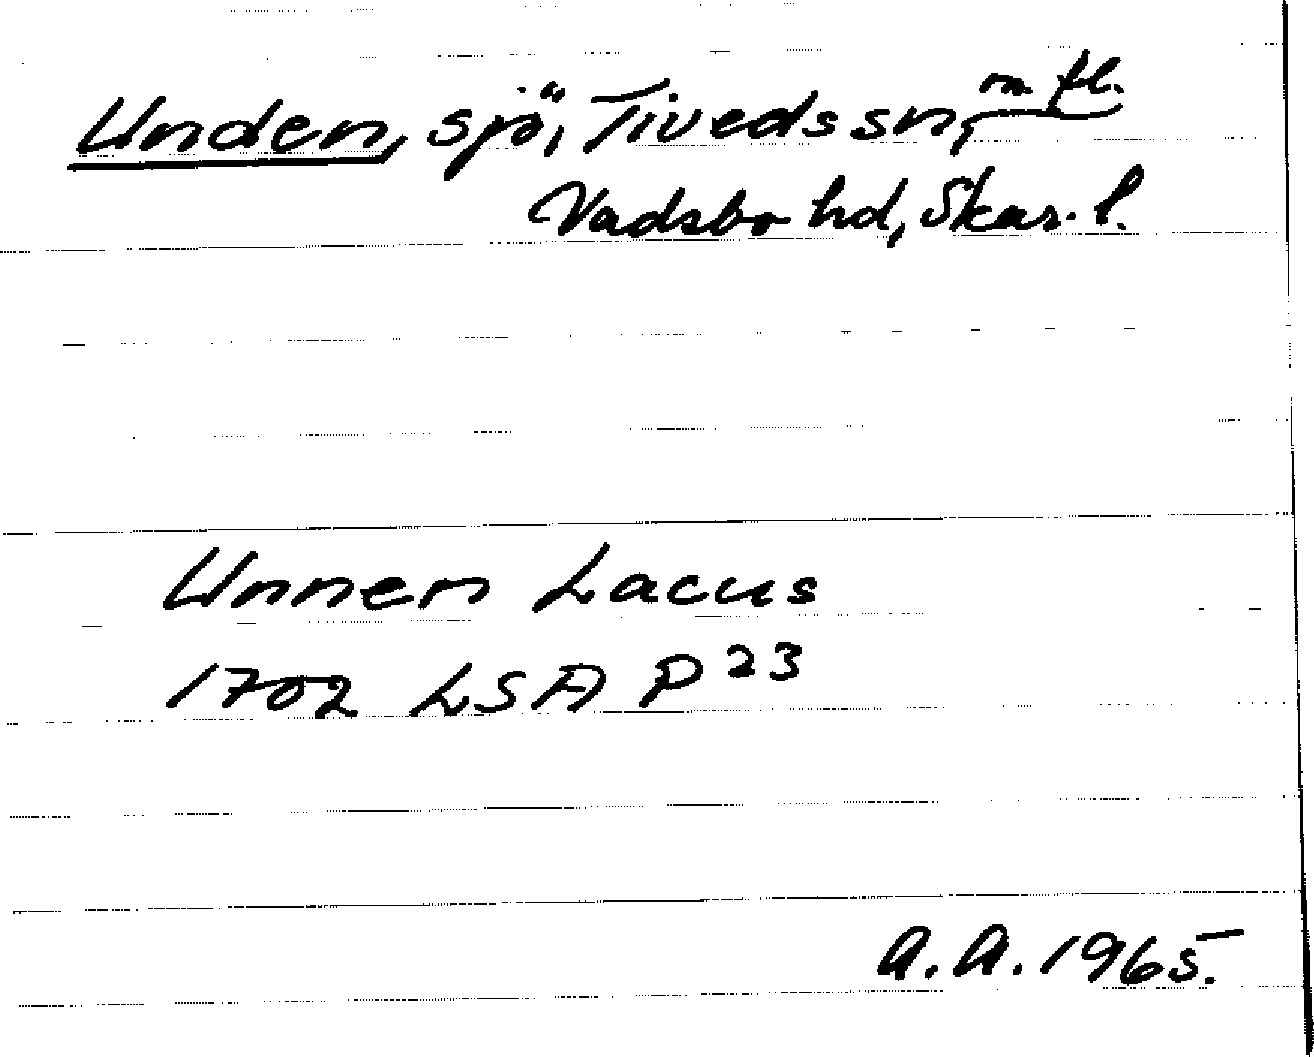 Unden, sjö, Tiveds sn, m. fl.
Vadsbo hd, Skar. l.
Unnen Lacus
1702 LSA P 23
A.A. 1965.